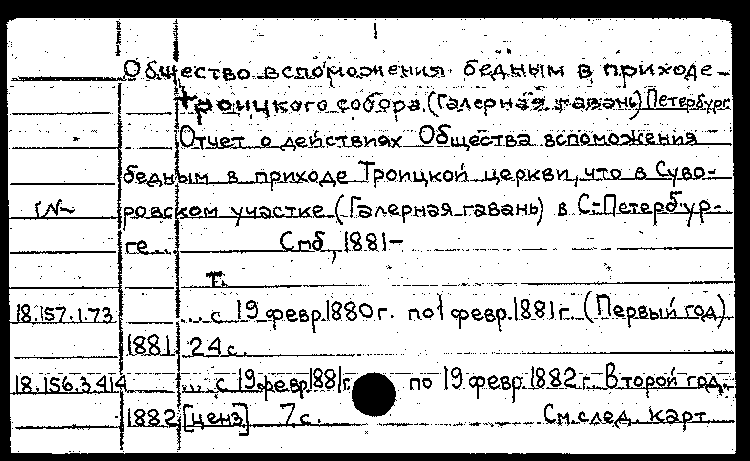 Общество вспоможения бедным в приходе
Троицкого собора (Галерная гавань) Петербург
Отчет о действиях Общества вспоможения
бедным в приходе Троицкой церкви, что в Суво-
ровском участке (Галерная гавань) в С-Петербур-
ге... Спб, 1881-
Т.
18.157.1.73 ... с 19 февр. 1880 г. по 1 февр. 1881 г. (Первый год)
1881. 24 с.
18.156.3.414 ... с 19 февр. 1881 г. по 19 февр. 1882 г. Второй год.
1882 [ценз] 7 с. См. след. карт.